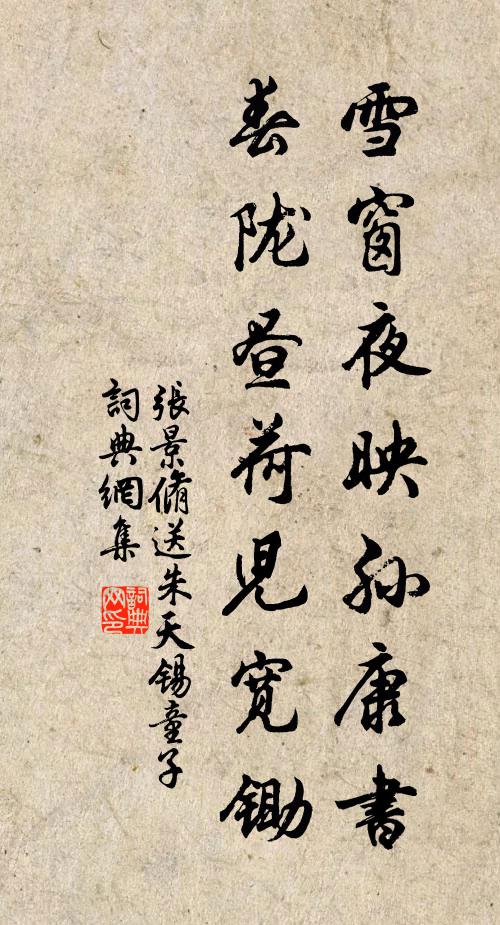 雪窗夜映孙康書
春陇昼荷児宽锄
張景脩送朱天锡童子
詞典網集
詞典网印